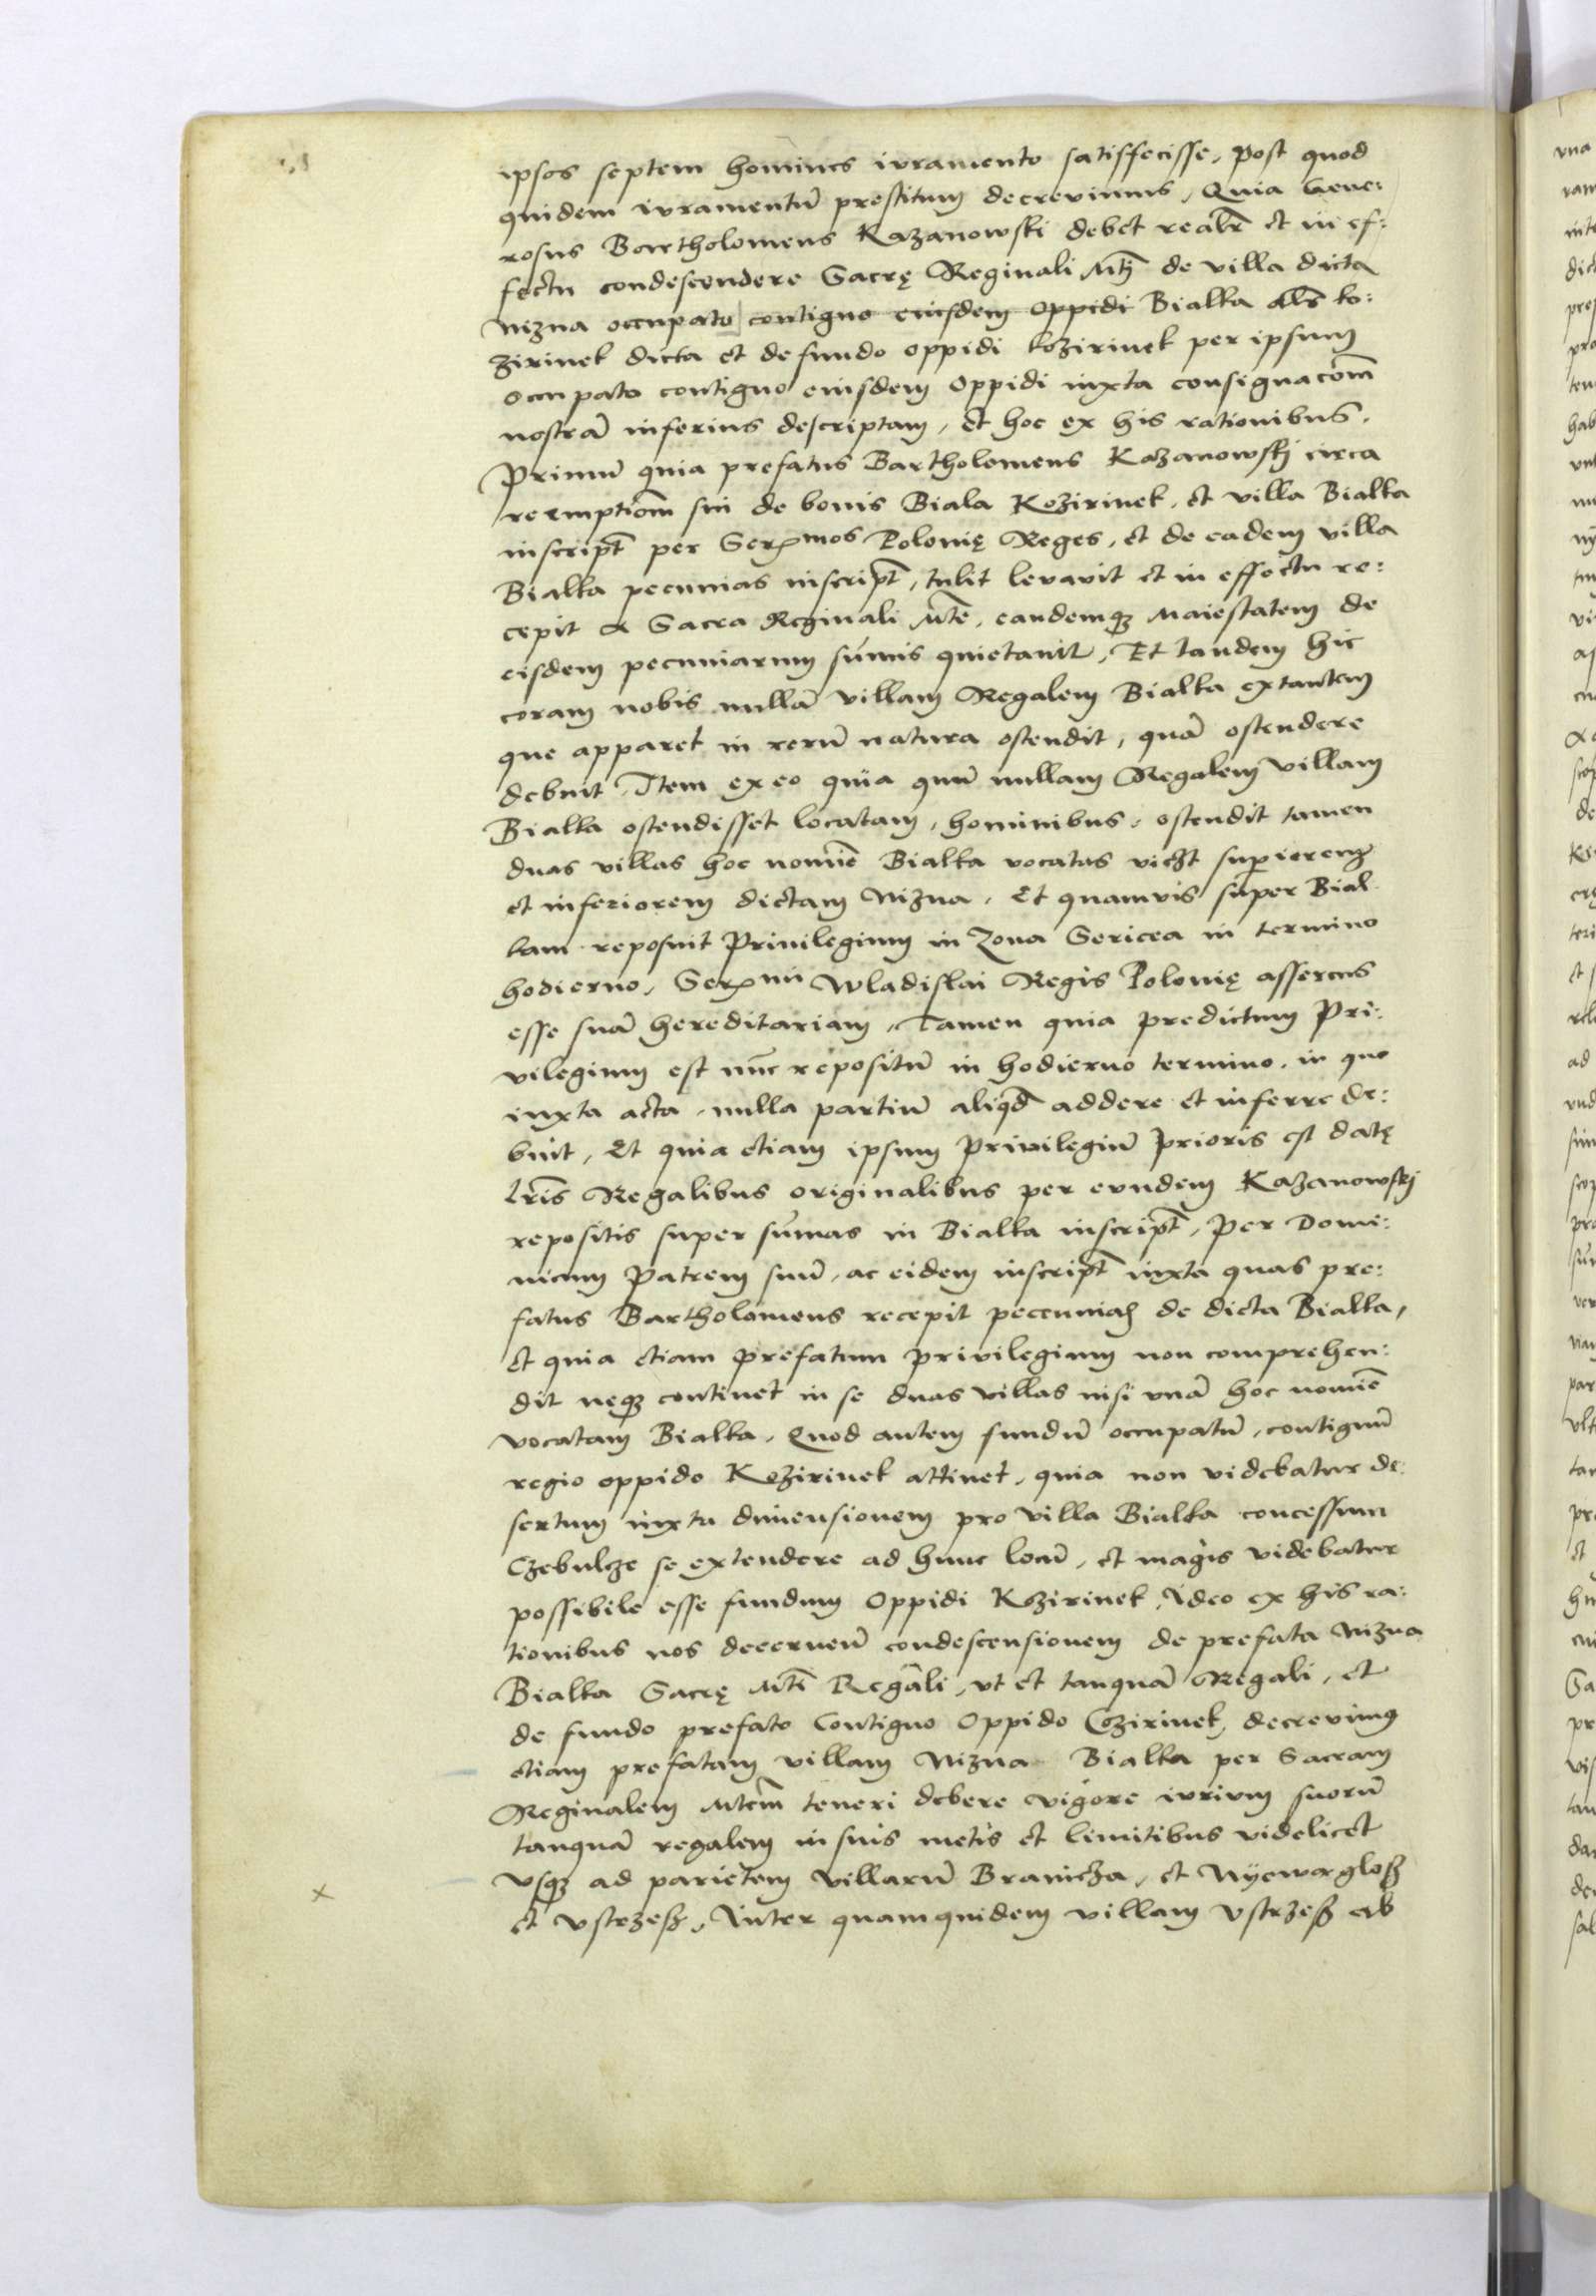 ipsos septem homines iuramento satisfecisse, Post quod
quidem iuramentū prestitum decreuimus, Quia Gene:
rosus Bartholomeus Kazanowski debet realr̄ et in ef:
fectu condescendere Sacrę Reginali Mtj̄ de villa dicta
Nizna occupato contiguo eiusdem Oppidi Bialka als̄ ko:
zirinek dicta et de fundo oppidi kozirinek per ipsum
occupato contiguo eiusdem Oppidi iuxta consignacōm
nostrā inferius descriptam, Et hoc ex his rationibus.
Primū quia prefatus Bartholomeus Kazanowskj circa
reemptiōm sui de bonis Biala Kozirinek, et villa Bialka
inscript̄ per Serͫmos Polonię Reges, et de eadem villa
Bialka pecunias inscript̄, tulit levavit et in effectu re:
cepit a Sacra Reginali Mtē, eandemqꝫ Maiestatem de
eisdem pecuniarum sūmis quietauit, Et tandem hic
coram nobis nullā villam Regalem Bialka extantem
que apparet in rerū natura ostendit, quā ostendere
debuit, Item ex eo quia quū nullam Regalem villam
Bialka ostendisset locatam, hominibus, ostendit tamen
duas villas hoc nomīe Bialka vocatas vichꝫt superiorem
et inferiorem dictam Nizna, Et quamvis super Bial
kam reposuit Priuilegium in Zona Sericea in termino
hodierno, Serͫmi Wladislai Regis Polonię asserens
esse suā hereditariam, Tamen quia predictum Pri:
vilegium est nūc repositū in hodierno termino, in quo
iuxta acta nulla partiū aliq̄d addere et inferre de:
buit, Et quia etiam ipsum Priuilegiū prioris est datę
lrīs Regalibus originalibus per eundem Kazanowskj
repositis super sūmas in Bialka inscript̄, Per Domi:
nicum Patrem suū, ac eidem inscript̄ iuxta quas pre:
fatus Bartholomeus recepit peccunias de dicta Bialka,
et quia etiam prefatum priuilegium non comprehen:
dit neqꝫ continet in se duas villas nisi vnā hoc nomīe
vocatam Bialka, Quod autem fundū occupatū, contiguū
regio oppido Kozirinek attinet, quia non videbatur de:
sertum iuxta dimensionem pro villa Bialka concessum
Czebulcze se extendere ad hunc locū, et magis videbatur
possibile esse fundum Oppidi Kozirinek, Ideo ex his ra:
tionibus nos decernenī condescensionem de prefata Nizna
Bialka Sacrę Mtī Regāli, vt et tanquā Regali, et
de fundo prefato Contiguo Oppido Cozirinek, decreuimꝰ
etiam prefatam villam Nizna Bialka per Sacram
Reginalem Mtem̄ teneri debere vigore iurium suorū
tanquā regalem in suis metis et limitibus videlicet
vsqꝫ ad parietem villarū Branicza, et Nyewąglosz
et Vstrzesz, Inter quam quidem villam Vstrzesz ab